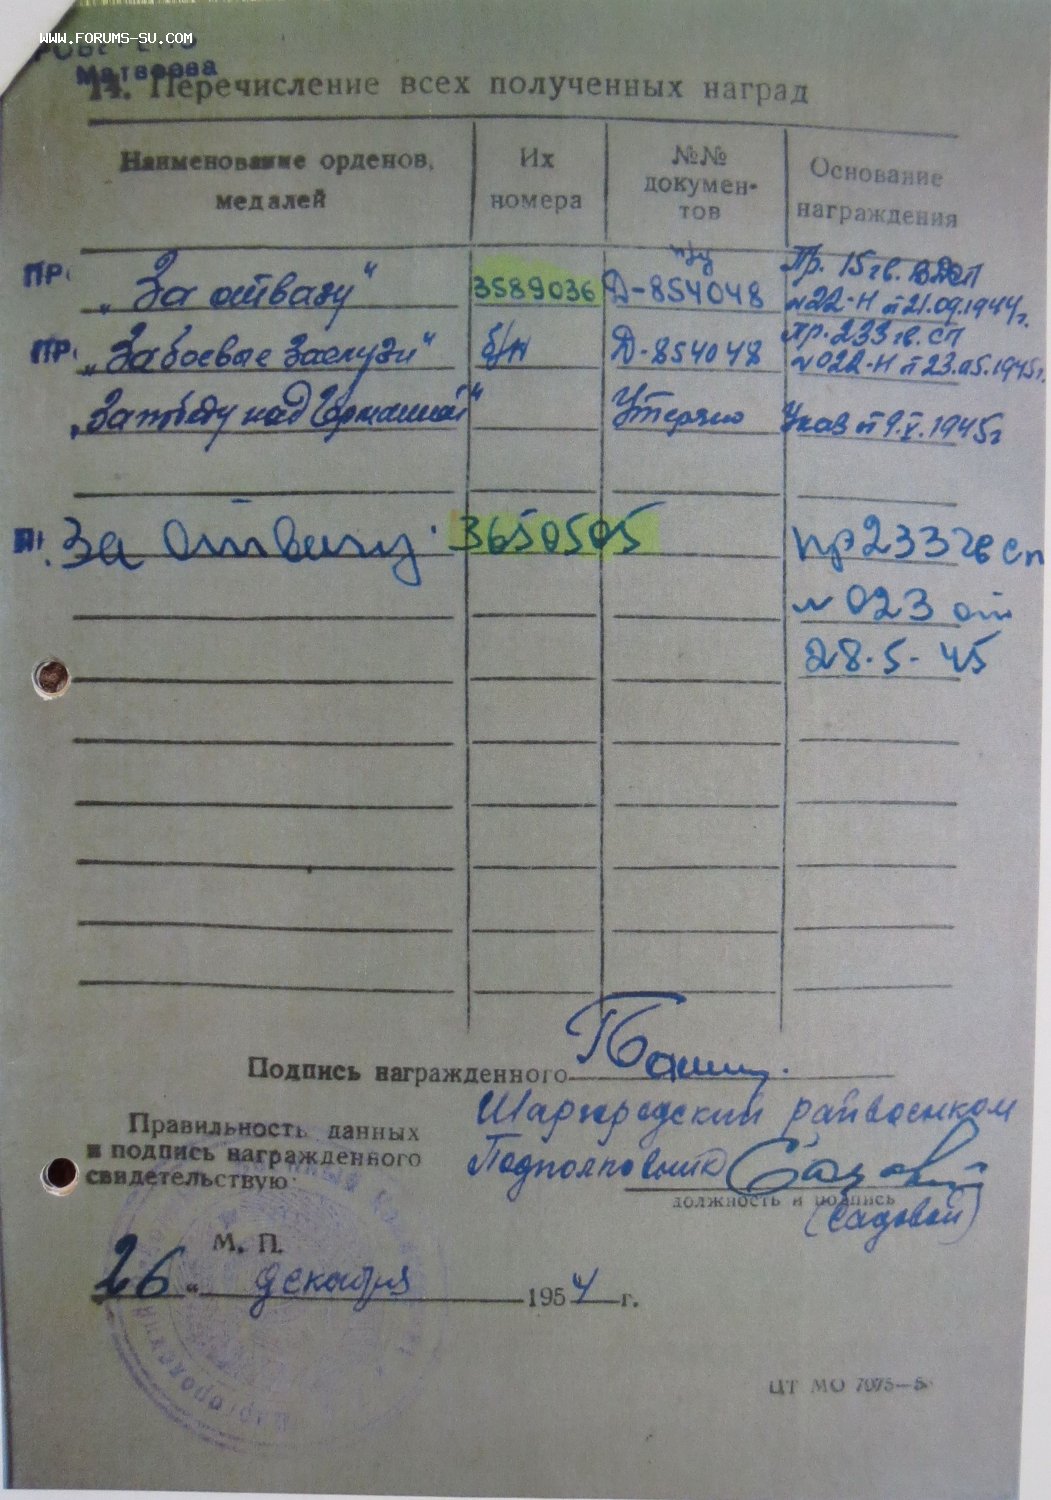 WWW.FORUMS-SU.COM
Матвеева
14. Перечисление всех полученных наград
Наименование орденов, медалей
Их номера
№№ документов
Основание награждения
ПР. „За отвагу“ 3589036 Д-854048 Пр. 15 гв. №22-Н от 21.09.1944г.
ПР. „За боевые заслуги“ б/н Д-854048 Пр. 233 гв. СП №022-Н от 23.05.1945г.
„За победу над Германией“ Утеряно Указ от 9.V.1945г
За отвагу. 3650505 пр 233 гв сп
№ 023 от
28.5-45
Подпись награжденного
Правильность данных
и подпись награжденного
свидетельствую:
Шаргородский райвоенком
Подполковник
должность и подпись
(Садовой)
М. П.
26 „ декабря 1954 г.
ЦТ МО 7075—5